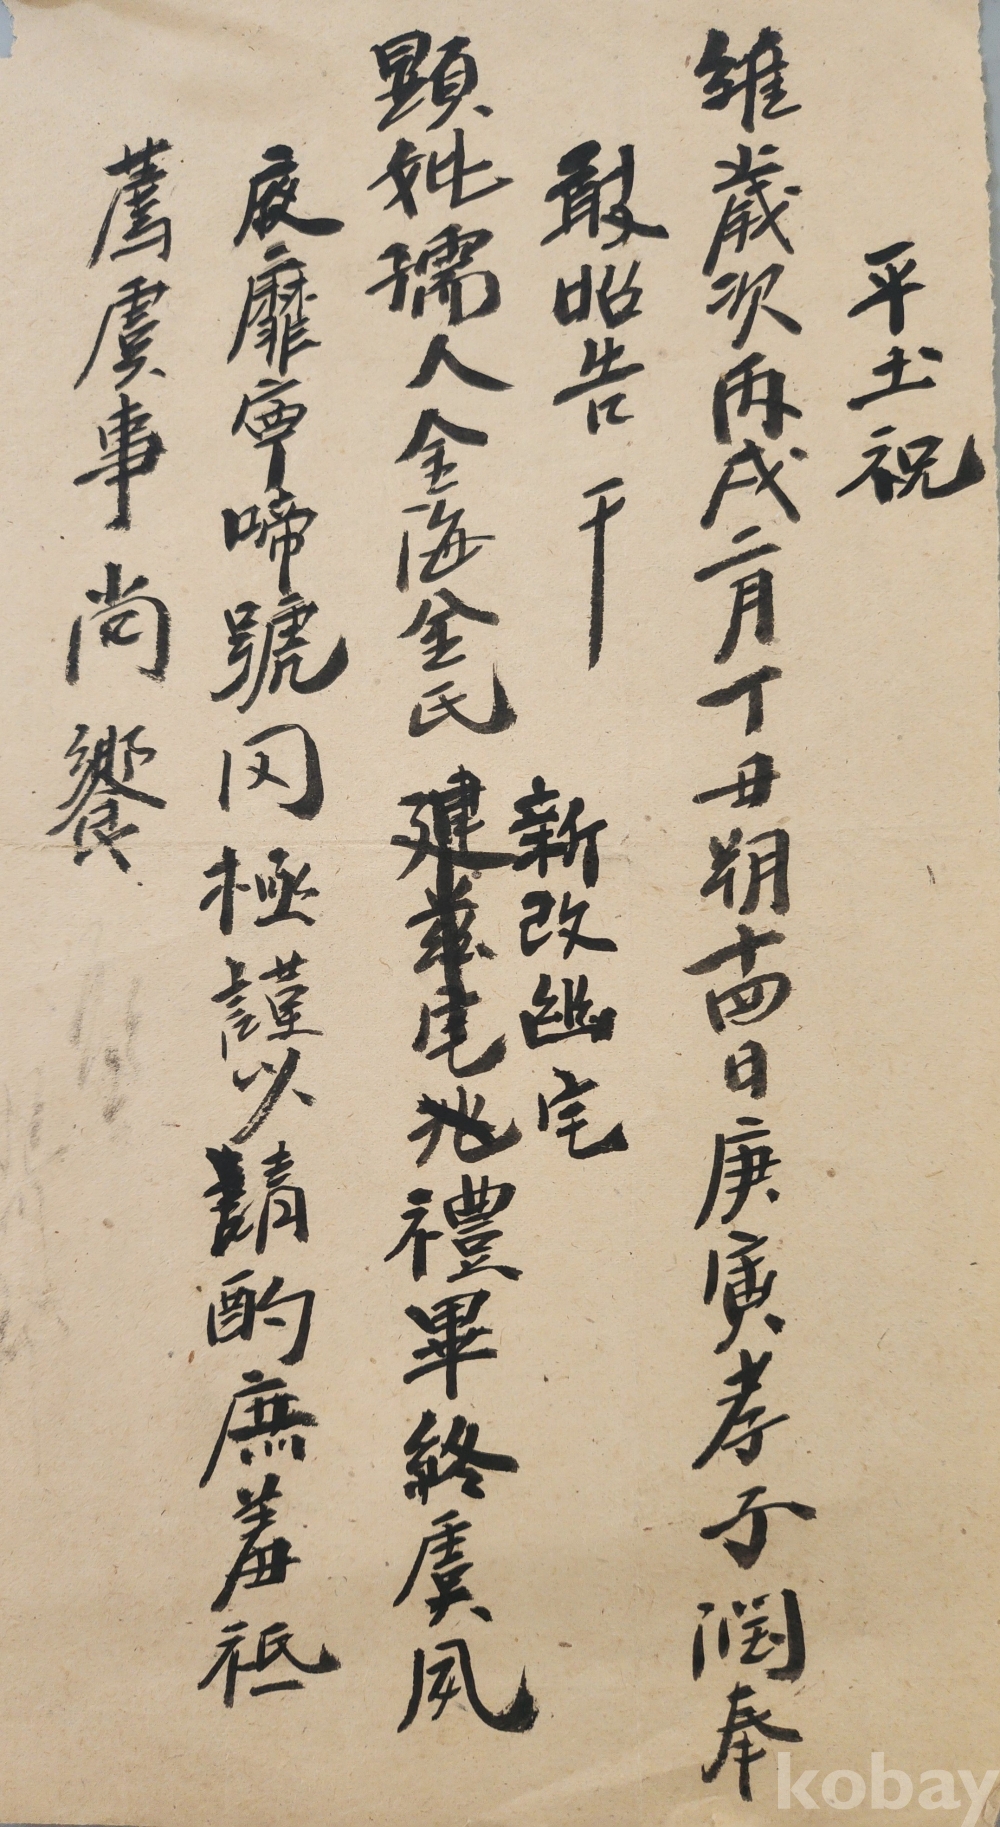 平土祝
維歲次丙戌二月丁丑朔十四日庚寅孝子潤奉
敢昭告于
新改幽宅
顯妣孺人金海金氏 建玆宅兆禮畢終虞夙
夜靡寧啼號罔極謹以請酌庶羞祗
薦虞事尚饗
kobay